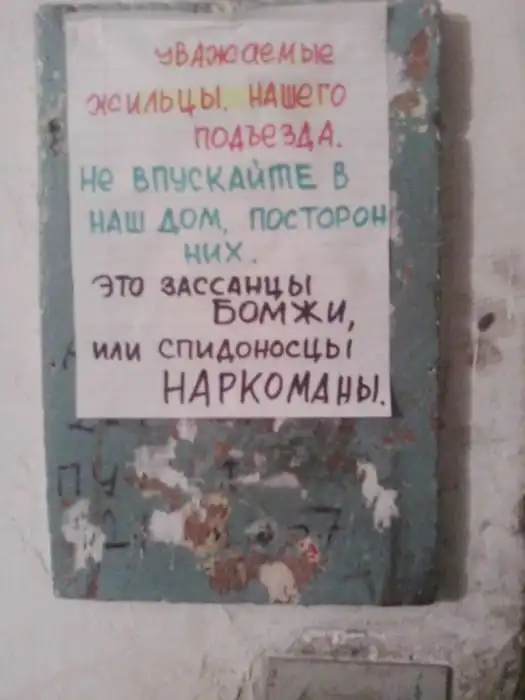 уважаемые
жильцы. нашего
подъезда.
не впускайте в
наш дом, посторон
них.
это зассанцы
бомжи,
или спидоносцы
наркоманы.